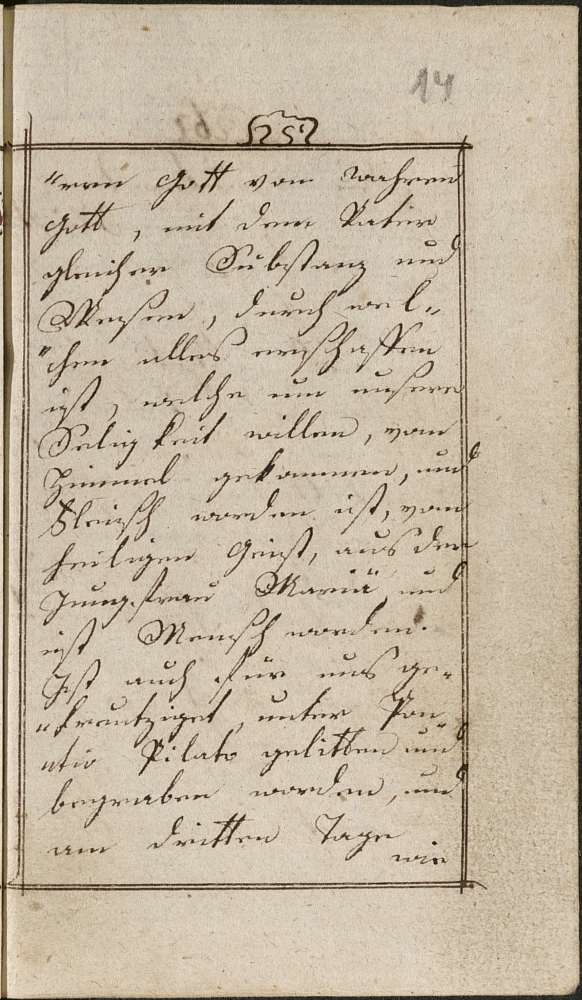 14
25
"ren Gott vom wahren
Gott, mit dem Vater
gleicher Substanz und
Wesen, durch wel„
"chen alles erschaffen
ist, welche um unsere
Seligkeit willen, vom
Himmel gekommen, und
Fleisch worden ist, vom
heiligen Geist, aus der
Jungfrau Mariä und
ist Mensch worden.
Ist auch für uns ge„
"kreutziget, unter Pon
"tio Pilato gelitten und
begraben worden, und
am dritten Tage
wie